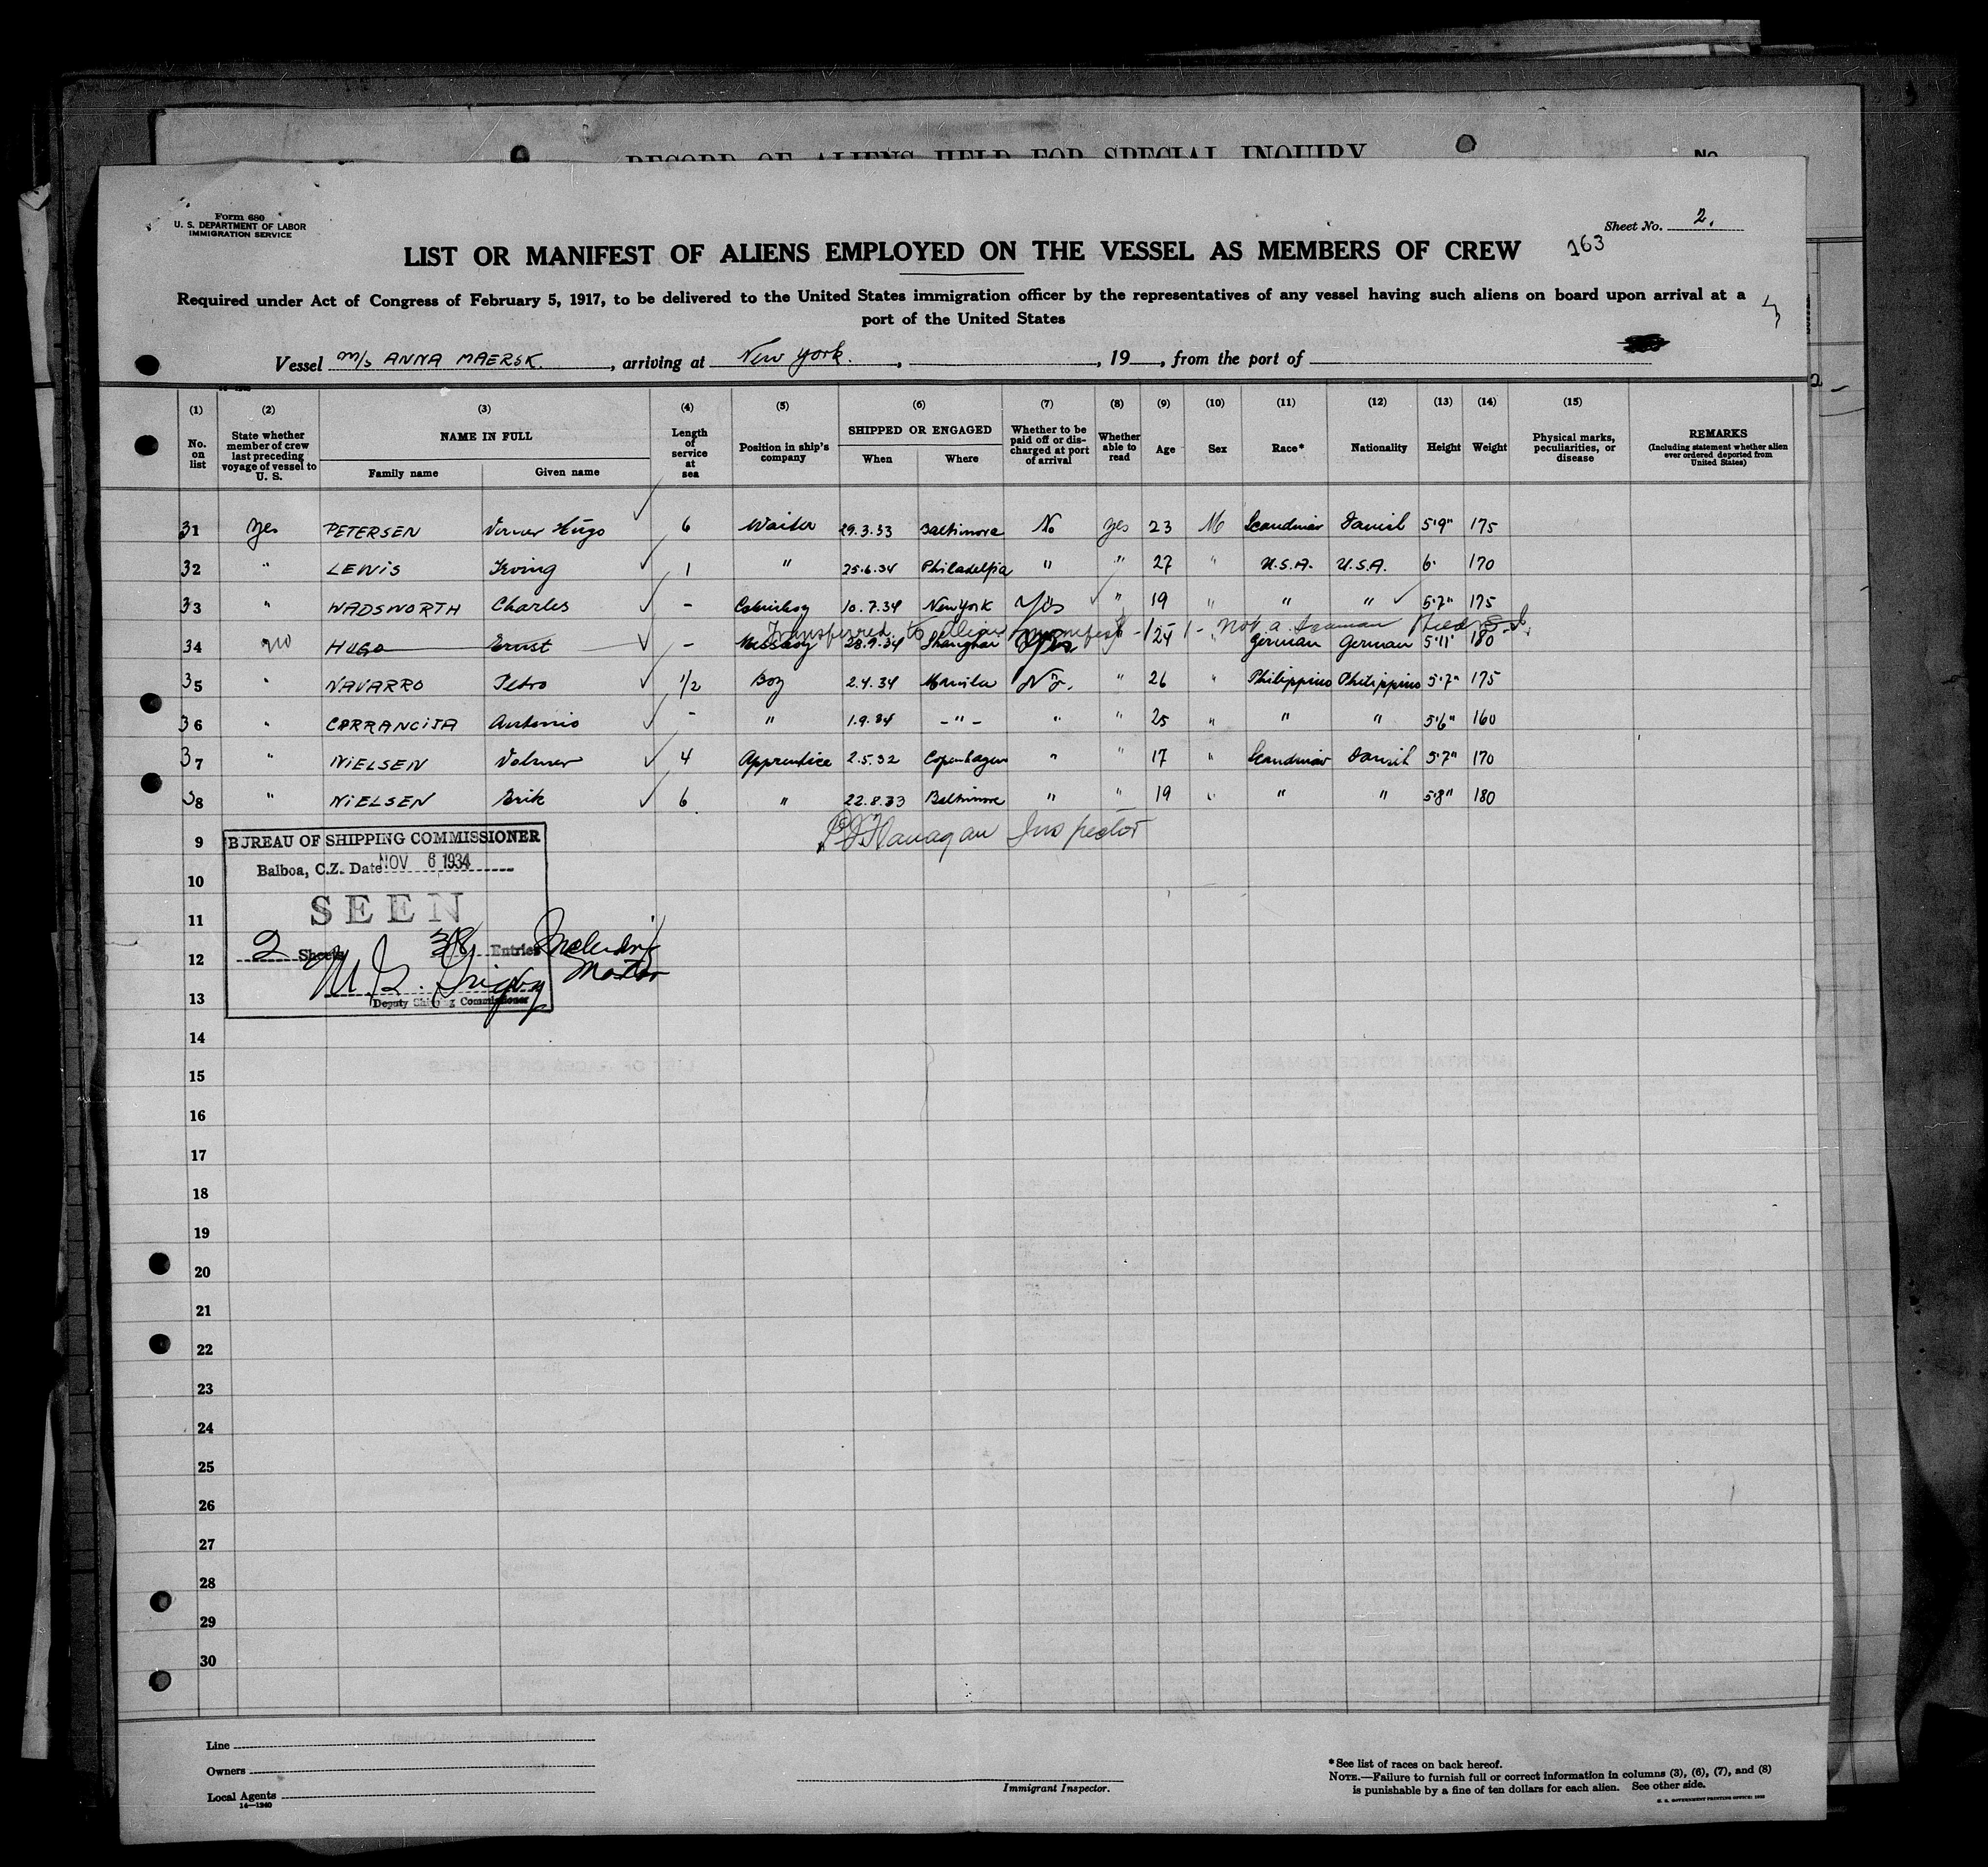 RECORD OF ALIENS HELD FOR SPECIAL INQUIRY
No.
Form 680
U. S. DEPARTMENT OF LABOR
IMMIGRATION SERVICE
Sheet No. 2.
163
LIST OR MANIFEST OF ALIENS EMPLOYED ON THE VESSEL AS MEMBERS OF CREW
Required under Act of Congress of February 5, 1917, to be delivered to the United States immigration officer by the representatives of any vessel having such aliens on board upon arrival at a
port of the United States
Vessel M/s ANNA MAERSK. , arriving at New York. , , 19 , from the port of
(1) No. on list
(2) State whether member of crew last preceding voyage of vessel to U. S.
(3) NAME IN FULL Family name Given name
(4) Length of service at sea
(5) Position in ship's company
(6) SHIPPED OR ENGAGED When Where
(7) Whether to be paid off or discharged at port of arrival
(8) Whether able to read
(9) Age
(10) Sex
(11) Race*
(12) Nationality
(13) Height
(14) Weight
(15) Physical marks, peculiarities, or disease
REMARKS (Including statement whether alien ever ordered deported from United States)
31 Yes PETERSEN Verner Hugo 6 Waiter 29.3.33 Baltimore No Yes 23 M Scandinav Danish 5'9" 175
32 " LEWIS Irving 1 " 25.6.34 Philadelpia " " 27 " U.S.A. U.S.A. 6' 170
33 " WADSWORTH Charles - 10.7.34 New York Yes " 19 " " " 5'7" 175
Transferred to Alien manifest - 1 - Not a Seaman Held S.I.
34 no HUGO Ernst - Messboy 28.9.34 Shanghai Yes 24 " German German 5'11" 180
35 " NAVARRO Petro 1/2 Boy 2.4.34 Manila No. " 26 " Philippino Philippino 5'7" 175
36 " CARRANCIJA Antonio - " 1.9.34 -"- " " 25 " " " 5'6" 160
37 " NIELSEN Volmer 4 Apprentice 2.5.32 Copenhagen " " 17 " Scandinav Danish 5'7" 170
38 " NIELSEN Erik 6 " 22.8.33 Baltimore " " 19 " " " 5'8" 180
Flanagan Inspector
9
BUREAU OF SHIPPING COMMISSIONER
Balboa, C.Z. Date NOV 6 1934
SEEN
2 Sheets 38 Entries Including
Master
Deputy Shipping Commissioner
10
11
12
13
14
15
16
17
18
19
20
21
22
23
24
25
26
27
28
29
30
Line
Owners
Local Agents
14—1240
Immigrant Inspector.
*See list of races on back hereof.
NOTE.—Failure to furnish full or correct information in columns (3), (6), (7), and (8)
is punishable by a fine of ten dollars for each alien. See other side.